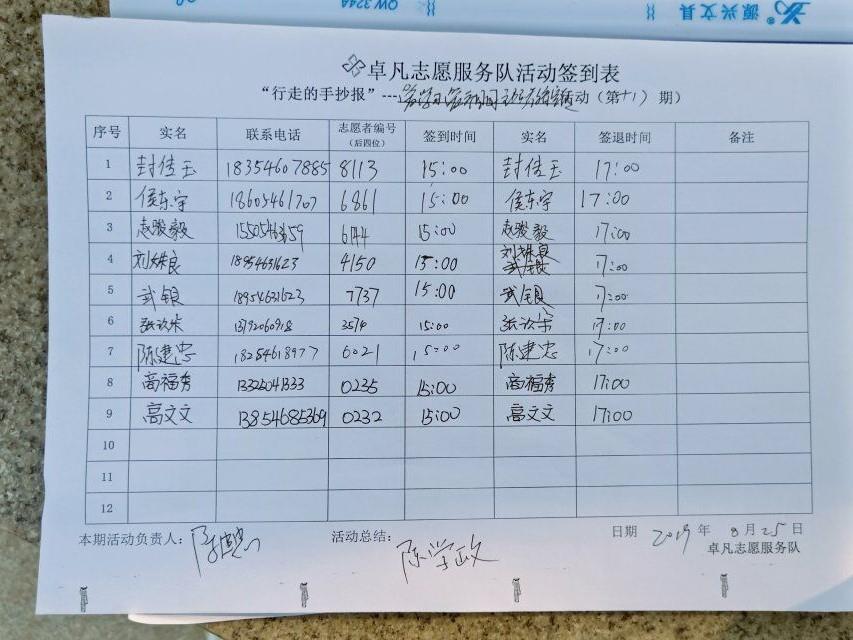 源兴文具
QW 324A
卓凡志愿服务队活动签到表
“行走的手抄报”---活动（第十1）期）
序号 实名 联系电话 志愿者编号（后四位） 签到时间 实名 签退时间 备注
1 封佳玉 18354607885 8113 15:00 封佳玉 17:00
2 侯东宇 18605461707 6861 15:00 侯东宇 17:00
3 15:00 17:00
4 刘姝良 18954631623 4150 15:00 刘姝良 17:00
5 武银 18954631623 7737 15:00 武银 17:00
6 15:00 17:00
7 陈建忠 18254618977 6021 15:00 陈建忠 17:00
8 高福秀 0235 15:00 高福秀 17:00
9 高文文 13854685369 0232 15:00 高文文 17:00
10
11
12
本期活动负责人： 活动总结： 陈学政 日期 2019 年 8月25日
卓凡志愿服务队